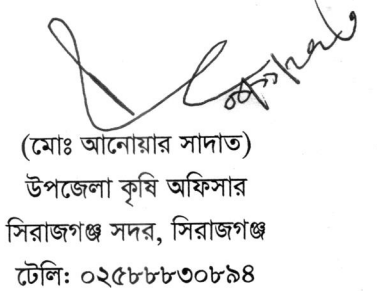 (মোঃ আনোয়ার সাদাত)
উপজেলা কৃষি অফিসার
সিরাজগঞ্জ সদর, সিরাজগঞ্জ
টেলি: ০২৫৮৮৮৩০৮৯৪